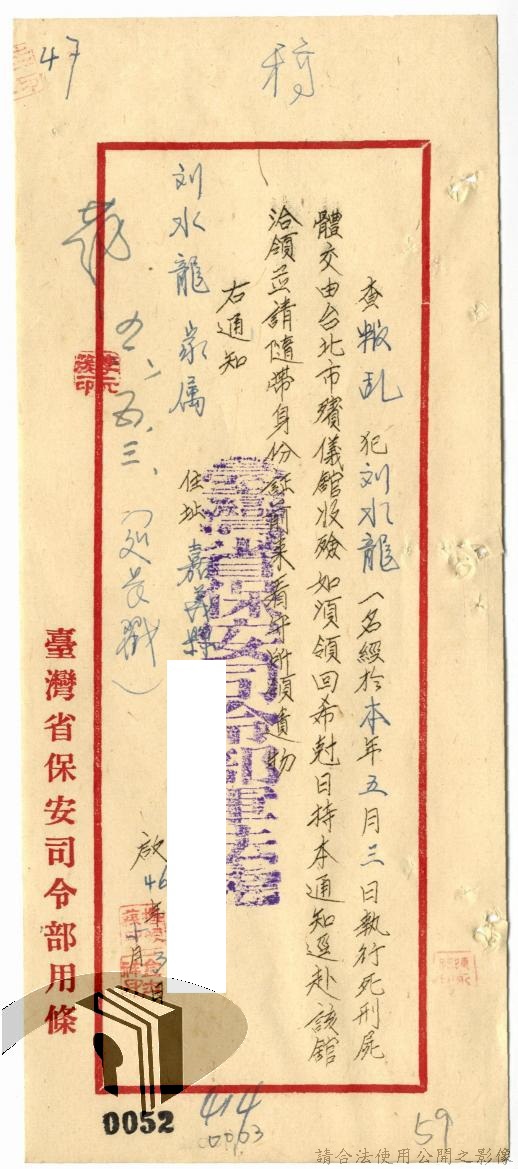 稿
47
查叛乱犯刘水龍一名經於本年五月三日執行死刑屍
體交由台北市殯儀館收殮如須領回希尅日持本通知逕赴該館
洽領並請隨帶身份証前來看守所領遺物
右通知
刘水龍家属
住址 嘉義縣
啟
46
五、三、
臺灣省保安司令部軍法處
臺灣省保安司令部用條
0052
414
0063
59
請合法使用公開之影像